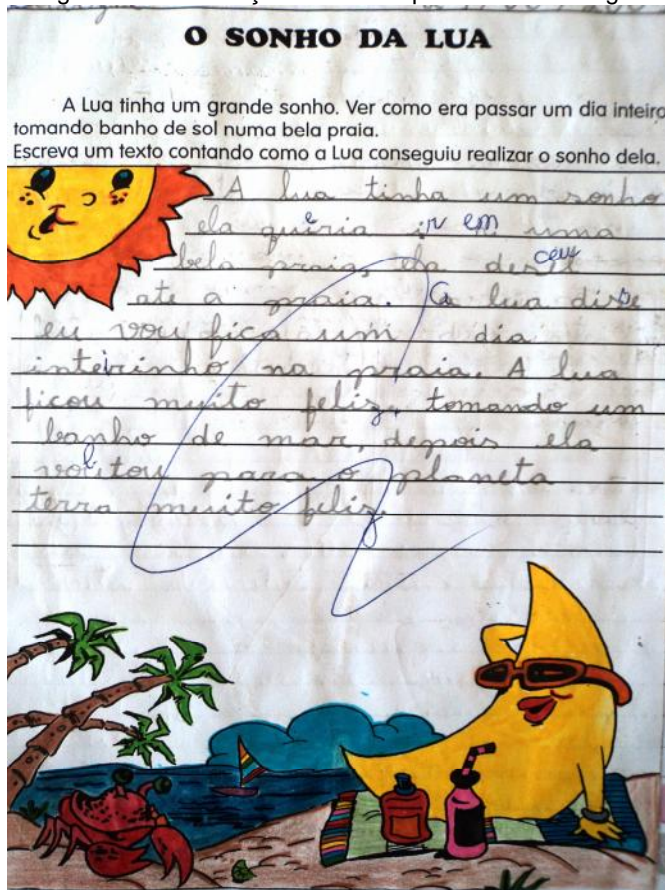 O SONHO DA LUA
A Lua tinha um grande sonho. Ver como era passar um dia inteiro
tomando banho de sol numa bela praia.
Escreva um texto contando como a Lua conseguiu realizar o sonho dela.
A lua tinha um sonho
ela queria ir em uma
bela praia, ela desceu
ate a praia. A lua disse
eu vou fica um dia
inteirinho na praia. A lua
ficou muito feliz, tomando um
banho de mar, depois ela
voltou para o planeta
terra muito feliz.